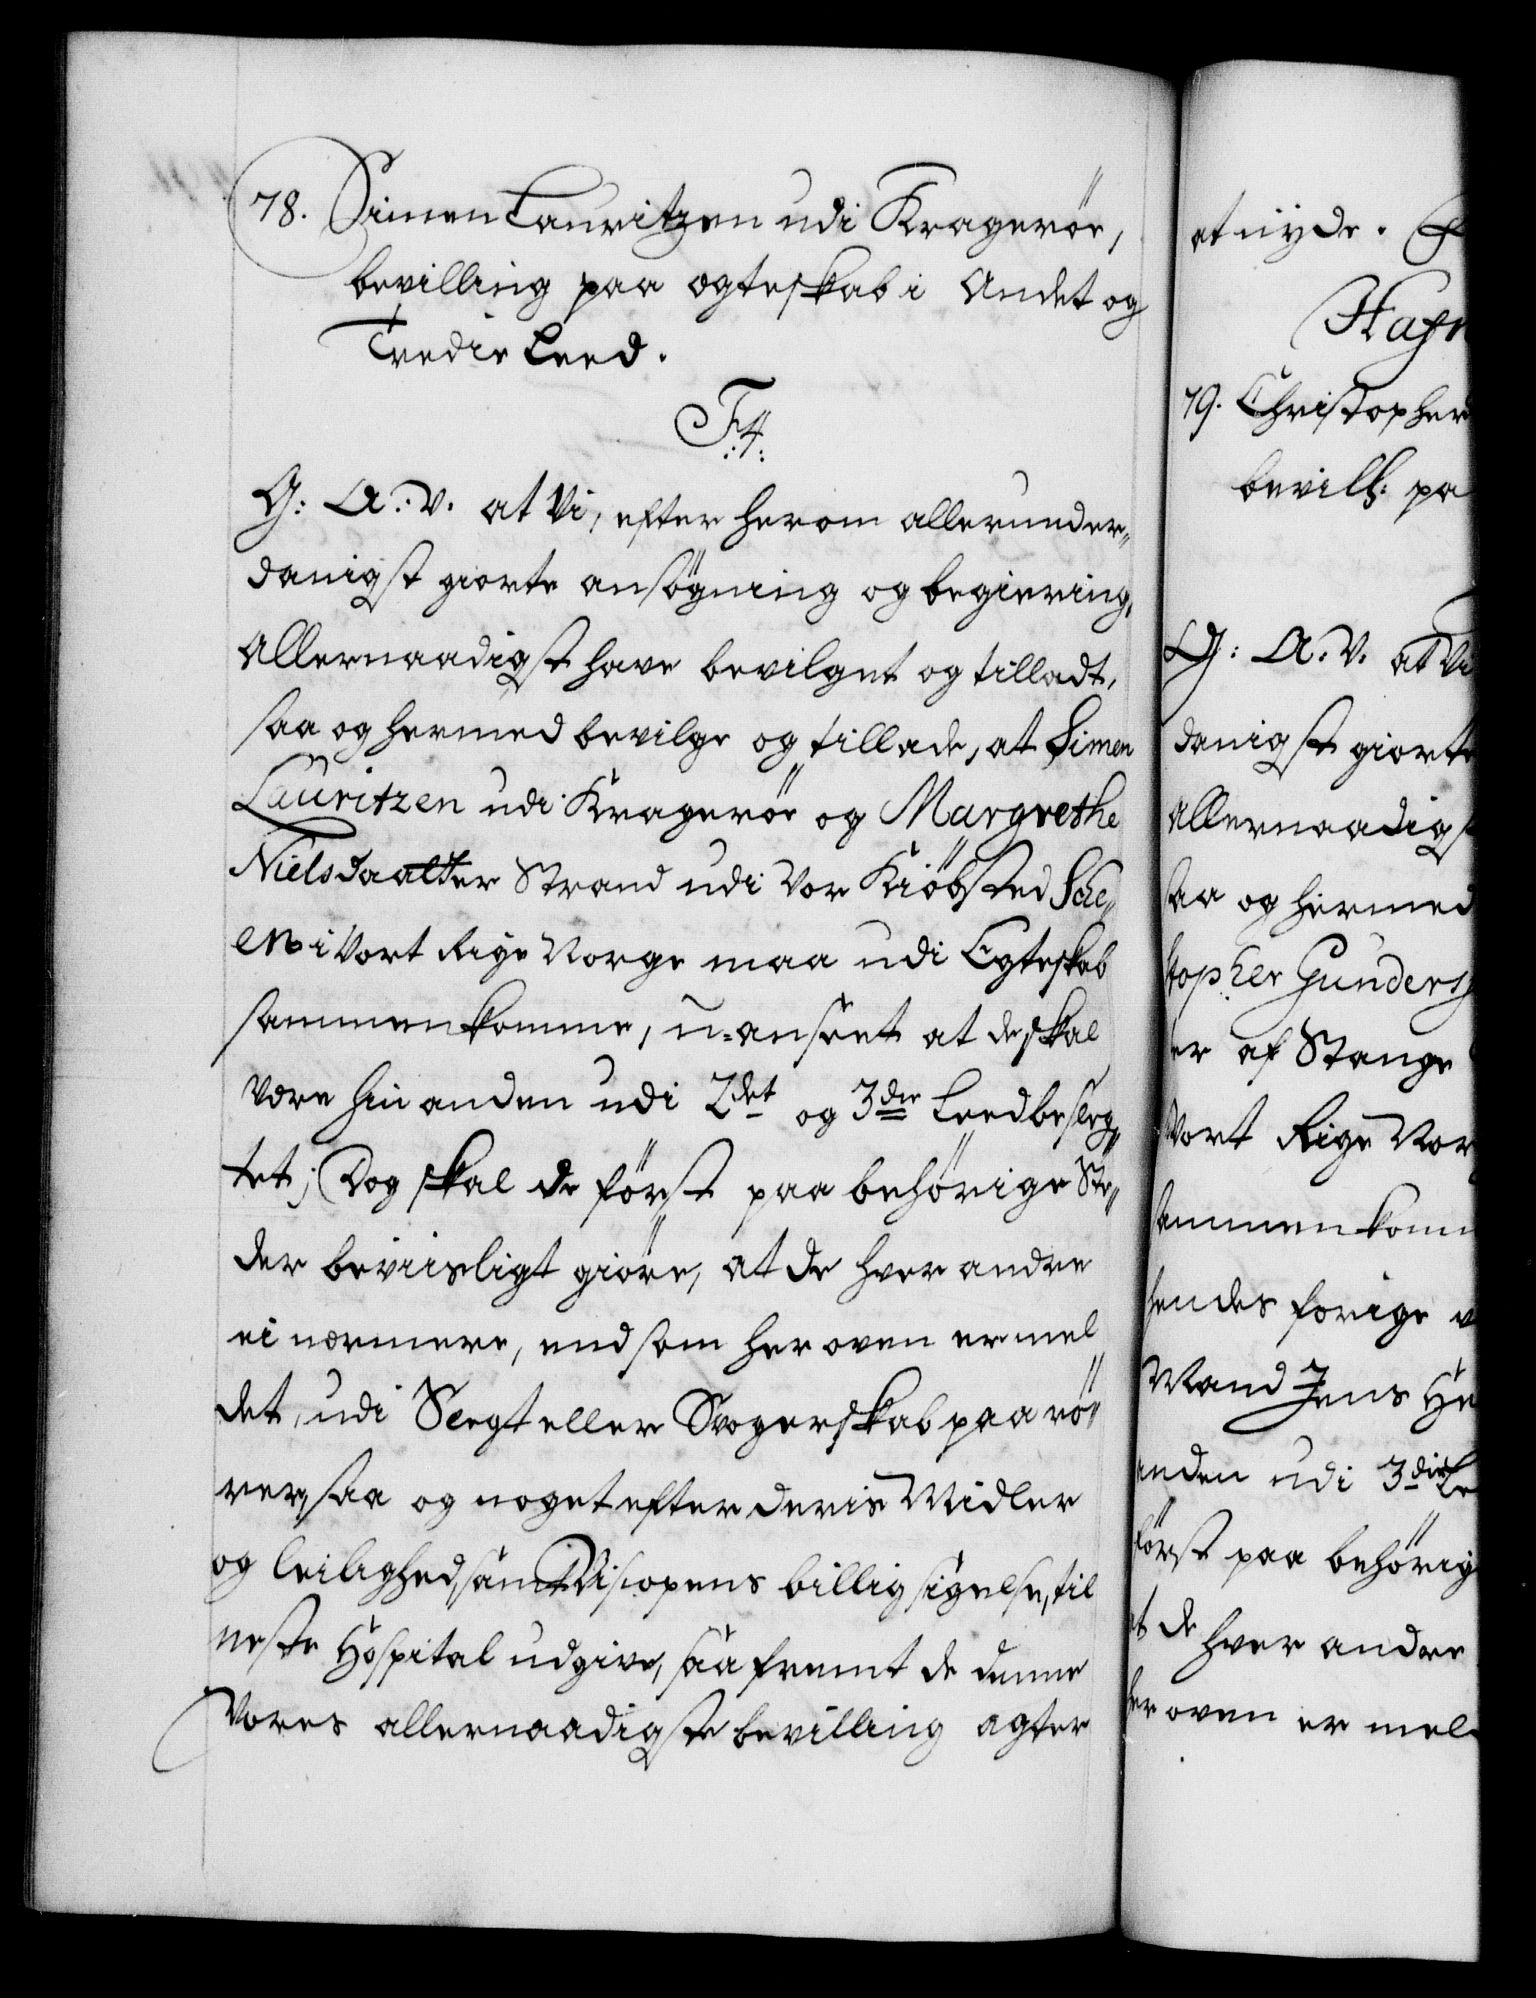 78. Simen Lauritzen udi Kragerøe,
bevilling paa ægteskab i Andet og
Tredie Leed.
F. 4.
G: A: V. at Vi, efter herom allerunder„
danigst giorte ansøgning og begiering,
Allernaadigst have bevilget og tilladt,
saa og hermed bevilge og tillade, at Simen
Lauritzen udi Kragerøe og Margrethe
Nielsdaatter Strand udi vor Kiøbsted Sche„
en i Vort Rige Norge maa udi Egteskab
sammenkomme, u-anseet at de skal
være hin anden udi 2det og 3die Leed beslæg„
tet; Dog skal de først paa behørige Ste„
der beviisligt giøre, at de hver andre
ei nærmere, end som her oven er mel„
det, udi Slegt eller Svogerskab paarø„
rer, saa og noget efter deris Midler
og leilighed, samt Biscopens billig sigelse, til
neste Hospital udgive, saafremt de denne
Vores allernaadigste bevilling agter
at nyde.
Hafn
79. Christopher
bevill: pa
G: A. V. at Vi
danigst giorte
Allernaadigs
saa og hermed
stopher Gunders
er af Stange
Vort Rige Nor
sammenkom
hendes forige
Mand Jens He
anden udi 3die Le
først paa behørig
at de hver andre
her oven er mel